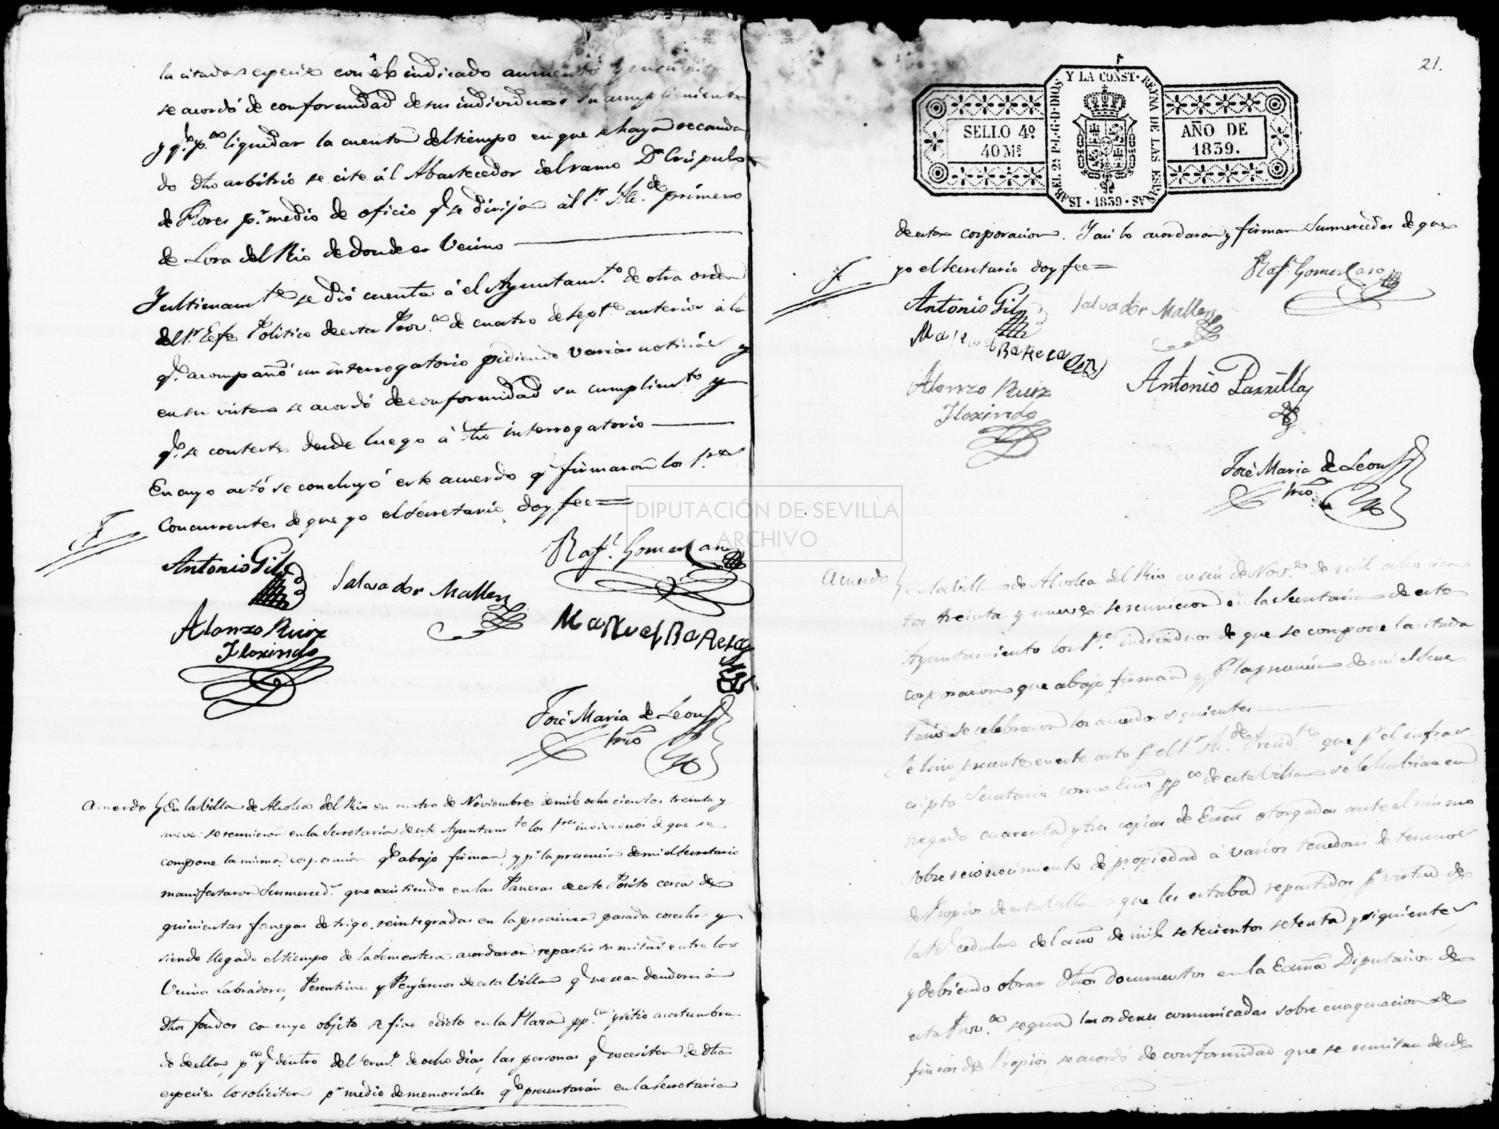 la citada especie con el indicado aumento y en su
se acordó de conformidad de sus individuos su cumplimiento
y q.e p.a liquidar la cuenta del tiempo en que se haya recauda
do dho arbitrio se cite al Abastecedor del ramo D.n Críspulo
de Flores p.r medio de oficio q.e se dirija al S.r Alc.e primero
de Lora del Rio de donde es Vecino
Y ultimam.te se dió cuenta á el Ayuntam.to de otra orden
del S.r Gefe Politico de esta Prov.a de cuatro de Sept.e anterior á la
q.e acompañó un interrogatorio pidiendo varias noticias y
en su vista se acordó de conformidad su cumplim.to y
q.e se conteste desde luego á dho interrogatorio
En cuyo acto se concluyó este acuerdo q.e firmaron los S.res
Concurrentes de que yo el Secretario doy fee=
Antonio Gil
Raf.l Gomez Caro
Salvador Mallen
Alonzo Ruiz
Florindo
Manuel Barera
José Maria de Leon
Srio
Acuerdo
En la Villa de Alcolea del Rio en cuatro de Noviembre de mil ochocientos treinta y
nueve se reunieron en la Secretaría de este Ayuntam.to los S.res individuos de que se
compone la misma corporacion q.e abajo firman y p.r la presencia de mi el Secretario
manifestaron Sus merced.s que existiendo en las Paneras de este Pósito cerca de
quinientas fanegas de trigo reintegradas en la proxima pasada cosecha y
siendo llegado el tiempo de la Sementera acordaron repartir su mitad entre los
Vecinos Labradores, Pelentrines y Pegujareros de esta Villa q.e no sean deudores á
dhos fondos con cuyo objeto se fixe edicto en la Plaza pp.ca y sitio acostumbra
do de ella, p.a q.e dentro del term.o de ocho dias, las personas q.e necesiten de dha
especie lo soliciten p.r medio de memoriales q.e presentarán en la Secretaria
21.
SELLO 4º
40 Ms
YSABEL 2ª P. L. G. D. DIOS Y LA CONST. REINA DE LAS ESPAÑAS
· 1839 ·
AÑO DE
1839.
de esta corporacion. Y asi lo acordaron y firman Sus mercedes de que
yo el Secretario doy fee=
Raf.l Gomez Caro
Antonio Gil
Salvador Mallen
Manuel Barera
Alonzo Ruiz
Florindo
Antonio Parrilla
José Maria de Leon
Srio
DIPUTACIÓN DE SEVILLA
ARCHIVO
Acuerdo
En la Villa de Alcolea del Rio en seis de Nov.e de mil ochocien
tos treinta y nueve se reunieron en la Secretaria de este
Ayuntamiento los S.res individuos de que se compone la citada
corporacion que abajo firman y p.r la presencia de mi el Secre
tario se celebraron los acuerdos siguientes
Se hizo presente en este acto p.r el S.r Presid.te que p.r el infras
cripto Secretario como Esno pp.co de esta Villa se le habian en
tregado cuarenta y tres copias de Escras otorgadas ante el mismo
sobre reconocimiento de propiedad á varios tenedores de terrenos
de Propios de esta Villa que les estaban repartidos p.r virtud de
la R.l cedula del año de mil setecientos setenta y siguientes
y debiendo obrar dhos documentos en la Exma Diputacion de
esta Prov.a segun las ordenes comunicadas sobre enagenacion de
fincas de Propios se acordó de conformidad que se remitan desde